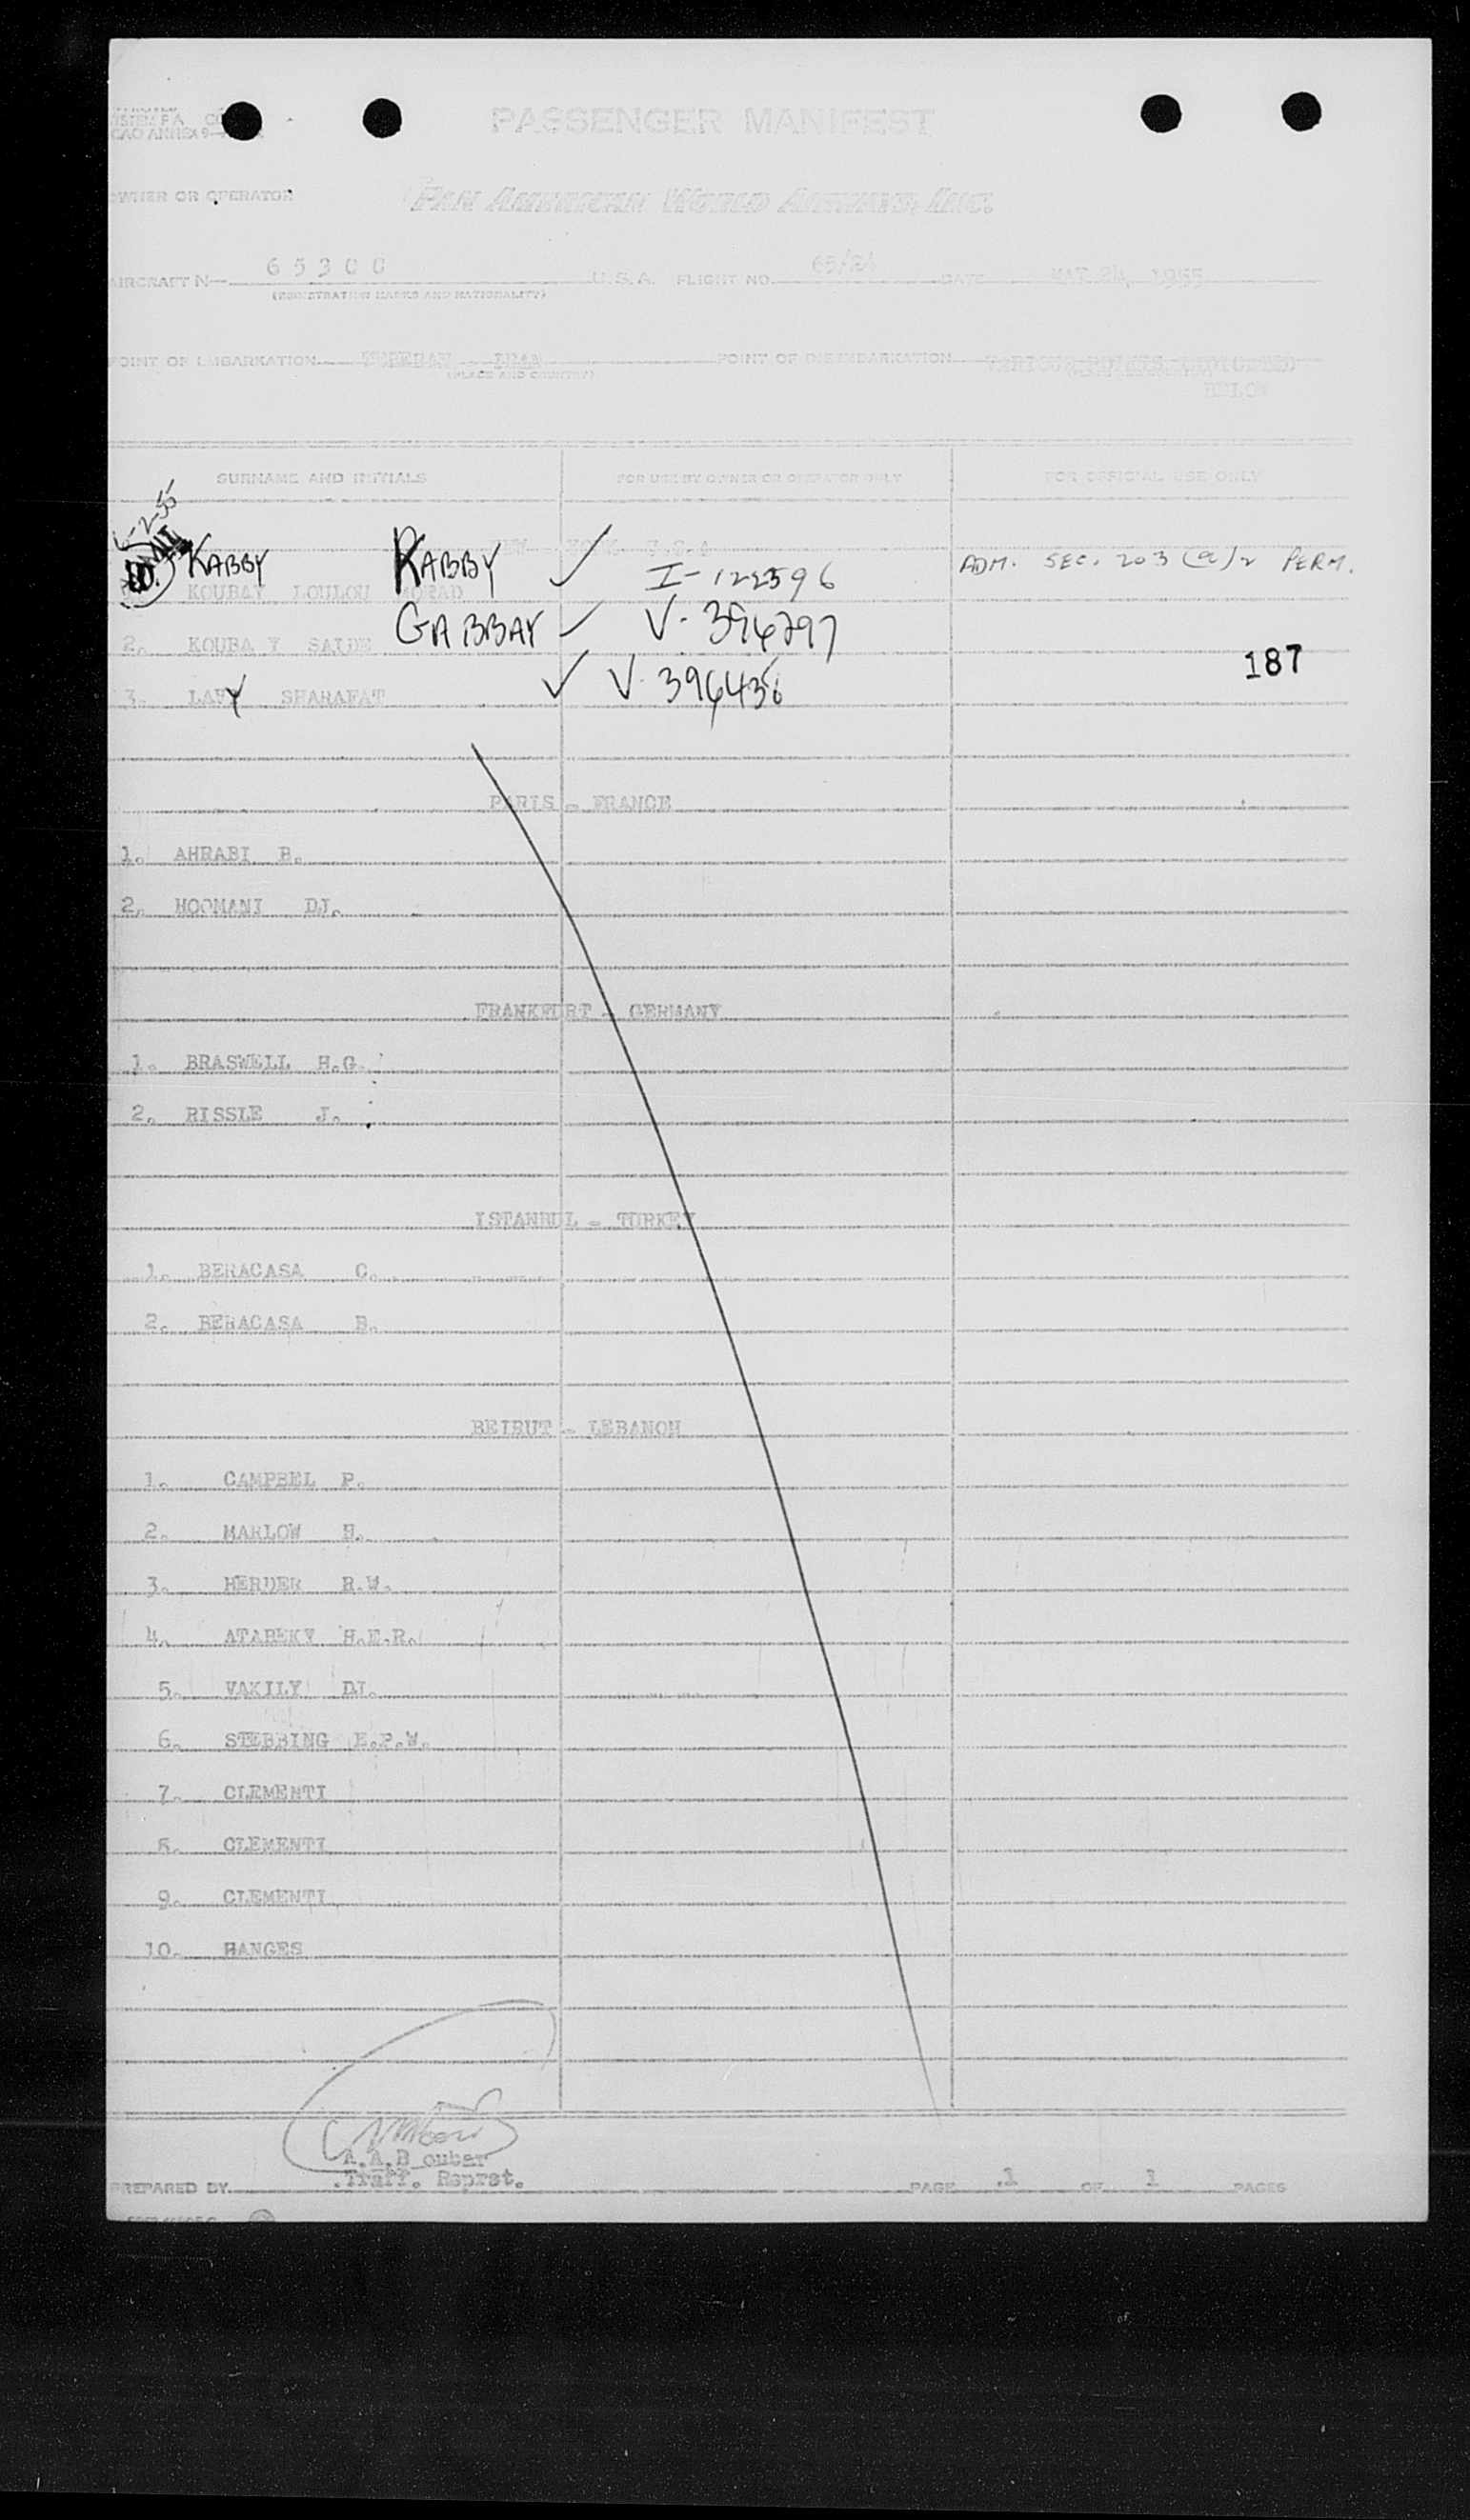 PASSENGER MANIFEST
ICAO ANNEX 9
OWNER OR OPERATOR PAN AMERICAN WORLD AIRWAYS, INC.
AIRCRAFT N— 65300 U.S.A. FLIGHT NO. 65/24 DATE MAY 24, 1955
(REGISTRATION MARKS AND NATIONALITY)
POINT OF EMBARKATION TEHERAN - IRAN POINT OF DISEMBARKATION VARIOUS POINTS INDICATED
(PLACE AND COUNTRY)
BELOW
SURNAME AND INITIALS FOR USE BY OWNER OR OPERATOR ONLY FOR OFFICIAL USE ONLY
6-2-55
NEW YORK U.S.A
KABBY KABBY ✓ I-122596 ADM. SEC. 203 (a)2 PERM.
KOUBAY LOULOU MORAD
GABBAY ✓ V-394297
2. KOUBA Y SAIDE
187
3. LAFY SHARAFAT ✓ V-396436
PARIS - FRANCE
1. AHRABI B.
2. HOOMANI DJ.
FRANKFURT - GERMANY
1. BRASWELL H.G.
2. RISSLE J.
ISTANBUL - TURKEY
1. BERACASA C.
2. BERACASA B.
BEIRUT - LEBANON
1. CAMPBEL P.
2. MARLOW H.
3. HERDER R.W.
4. ATABEKY H.E.R.
5. VAKILY DJ.
6. STEBBING E.P.W.
7. CLEMENTI
8. CLEMENTI
9. CLEMENTI
10. HANGES
A.A.B ouber
PREPARED BY Traff. Reprst. PAGE 1 OF 1 PAGES